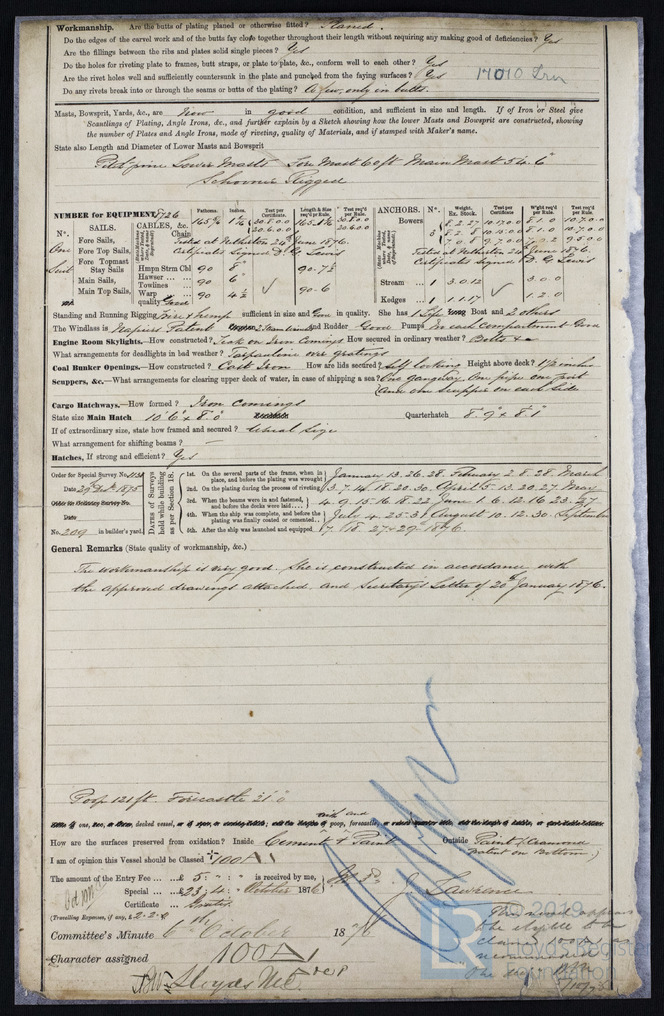 Workmanship. Are the butts of plating planed or otherwise fitted? Planed.
Do the edges of the carvel work and of the butts fay close together throughout their length without requiring any making good of deficiencies? Yes
Are the fillings between the ribs and plates solid single pieces? Yes
Do the holes for riveting plate to frames, butt straps, or plate to plate, &c., conform well to each other? Yes
Are the rivet holes well and sufficiently countersunk in the plate and punched from the faying surfaces? Yes
14010 Iron
Do any rivets break into or through the seams or butts of the plating? A few, only in butts.
Masts, Bowsprit, Yards, &c., are New in good condition, and sufficient in size and length. If of Iron or Steel give
Scantlings of Plating, Angle Irons, &c., and further explain by a Sketch showing how the lower Masts and Bowsprit are constructed, showing
the number of Plates and Angle Irons, mode of riveting, quality of Materials, and if stamped with Maker's name.
State also Length and Diameter of Lower Masts and Bowsprit
Pitch pine Lower Masts Fore Mast 60ft Main Mast 54.6
Schooner Rigged
NUMBER for EQUIPMENT
Nº. SAILS. CABLES, &c. Fathoms. Inches. Test per Certificate. Length & Size req'd pr Rule. Test req'd per Rule.
ANCHORS. Nº. Weight. Ex. Stock. Test per Certificate. W'ght req'd per Rule. Test req'd per Rule.
Fore Sails, Chain
Fore Top Sails,
Fore Topmast Stay Sails
Main Sails,
Main Top Sails,
One Suit
Tested at Netherton 24th June 1876.
Certificates Signed D. G. Lewis
Hmpn Strm Cbl 90 8 90-7½
Hawser 90 6
Towlines
Warp 90 4½ 90-6
quality Good
Bowers 3
Certificates signed D. G. Lewis
Stream 1 3.0.12 3.0.0
Kedges 1 1.1.17 1.2.0
Standing and Running Rigging Wire & hemp sufficient in size and Good in quality. She has 1 Life Boat and 2 others
The Windlass is Napiers Patent and Rudder Good Pumps In each compartment Good
Engine Room Skylights.—How constructed? Teak on Iron Comings How secured in ordinary weather? Bolts &c
What arrangements for deadlights in bad weather? Tarpaulins over gratings
Coal Bunker Openings.—How constructed? Cast Iron How are lids secured? Self locking Height above deck? 1½ inches
Scuppers, &c.—What arrangements for clearing upper deck of water, in case of shipping a sea? One gangway One pipe one port
and one scupper on each side
Cargo Hatchways.—How formed? Iron comings
State size Main Hatch 10'6" x 8'.0" Quarterhatch 8'.9" x 8'.1"
If of extraordinary size, state how framed and secured? Usual Size
What arrangement for shifting beams? —
Hatches, If strong and efficient? Yes
Order for Special Survey No.
Date 29th Dec 1875
Order for Ordinary Survey No.
Date
No. 209 in builder's yard.
DATES of Surveys held while building as per Section 18.
1st. On the several parts of the frame, when in place, and before the plating was wrought January 13. 26. 28. February 2. 8. 28. March
2nd. On the plating during the process of riveting 3. 7. 14. 18. 20. 30. April 5. 13. 20. 27. May
3rd. When the beams were in and fastened, and before the decks were laid 4. 9. 15. 16. 18. 22. June 1. 6. 12. 16. 23. 27.
4th. When the ship was complete, and before the plating was finally coated or cemented July 4. 25. 31 August 10. 12. 30. September
5th. After the ship was launched and equipped 7. 18. 27 & 29th 1876.
General Remarks (State quality of workmanship, &c.)
The workmanship is very good. She is constructed in accordance with
the approved drawings attached and Secretary's Letter of 20th January 1876.
Poop 121 ft. Forecastle 21.0
How are the surfaces preserved from oxidation? Inside Cement & Paint Outside Paint (
Patent on Bottom)
I am of opinion this Vessel should be Classed 100A1
The amount of the Entry Fee £ 5 : : is received by me,
Special £23 : 4 : October 1876
J. Lawrence
Certificate Gratis
(Travelling Expenses, if any, £ 2.2.0)
Committee's Minute 6th October 1876
Character assigned 100A1
Lloyds MC
This vessel appears
to be eligible to be
classed 100A as
recommended
© 2019
Lloyd's Register
Foundation
LR